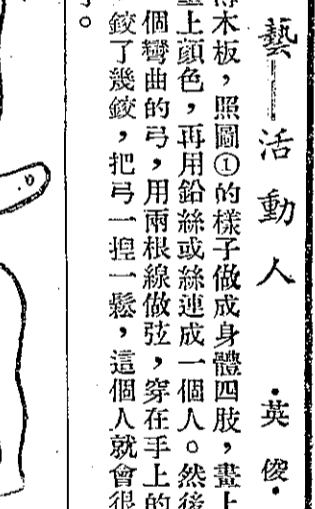 藝——活動人 ·英俊·
木板，照圖①的樣子做成身體四肢，畫上
上顏色，再用鉛絲或絲連成一個人。然後
個彎曲的弓，用兩根線做弦，穿在手上的
鉸了幾鉸，把弓一揑一鬆，這個人就會很
。